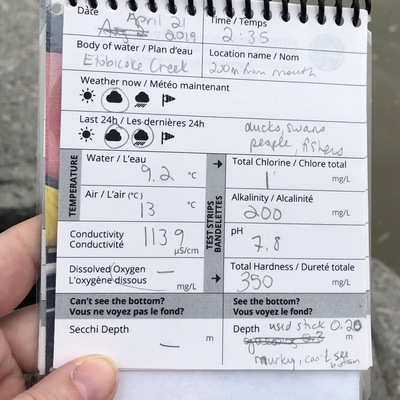 Date April 21
Aug 2 2019
Time / Temps
2:35
Body of water / Plan d'eau
Etobicoke Creek
Location name / Nom
200m from mouth
Weather now / Météo maintenant
Last 24h / Les dernières 24h
ducks, swans
people, fishers
TEMPERATURE
Water / L'eau
9.2 °C
Air / L'air (°C)
13 °C
Conductivity
Conductivité
1139
µS/cm
Dissolved Oxygen
L'oxygène dissous
—
mg/L
TEST STRIPS
BANDELETTES
Total Chlorine / Chlore total
1 mg/L
Alkalinity / Alcalinité
200 mg/L
pH
7.8
Total Hardness / Dureté totale
350 mg/L
Can't see the bottom?
Vous ne voyez pas le fond?
Secchi Depth
— m
See the bottom?
Vous voyez le fond?
Depth used stick 0.20
m
murky, can't see
bottom